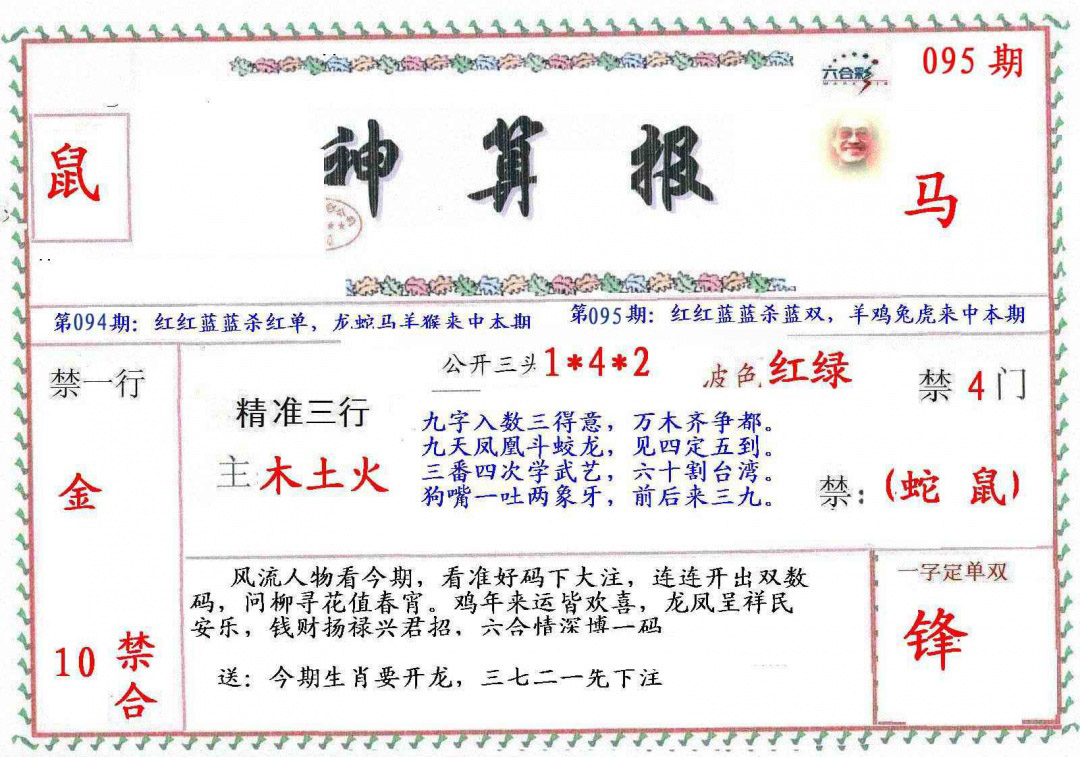 六合彩
095 期
鼠
神 算 报
马
第094期：红红蓝蓝杀红单，龙蛇马羊猴来中本期
第095期：红红蓝蓝杀蓝双，羊鸡兔虎来中本期
禁一行
金
10 禁合
精准三行
主 木土火
公开三头 1*4*2
波色 红绿
九字入数三得意，万木齐争都。
九天凤凰斗蛟龙，见四定五到。
三番四次学武艺，六十割台湾。
狗嘴一吐两象牙，前后来三九。
禁 4 门
禁：(蛇 鼠)
风流人物看今期，看准好码下大注，连连开出双数
码，问柳寻花值春宵。鸡年来运皆欢喜，龙凤呈祥民
安乐，钱财扬禄兴君招，六合情深博一码
送：今期生肖要开龙，三七二一先下注
一字定单双
锋